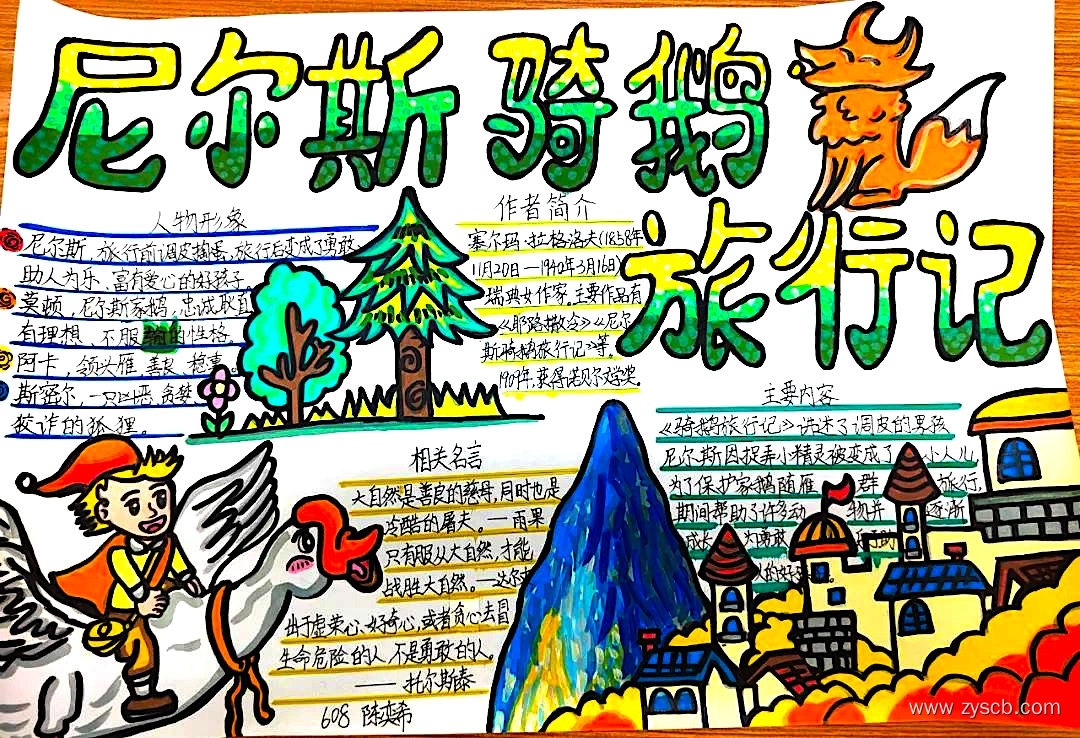 尼尔斯骑鹅
旅行记
人物形象
尼尔斯,旅行前调皮捣蛋,旅行后变成了勇敢,
助人为乐、富有爱心的好孩子
莫顿,尼尔斯家鹅,忠诚耿直
有理想 不服输的性格
阿卡,领头雁 善良 稳重。
斯密尔,一只凶恶 贪婪
狡诈的狐狸。
作者简介
塞尔玛·拉格洛夫(1858年
11月20日—1940年3月16日)
瑞典女作家。主要作品有
《耶路撒冷》《尼尔
斯骑鹅旅行记》等。
1909年,获得诺贝尔文学奖。
相关名言
大自然是善良的慈母,同时也是
冷酷的屠夫。——雨果
只有服从大自然,才能
战胜大自然。——达尔文
出于虚荣心、好奇心,或者贪心去冒
生命危险的人,不是勇敢的人。
——托尔斯泰
608 陈奕希
主要内容
《骑鹅旅行记》讲述了调皮的男孩
尼尔斯因捉弄小精灵被变成了 小人儿
为了保护家鹅随雁 群 旅行,
期间帮助了许多动 物并 逐渐
成长 为勇敢 助
人的好
www.zyscb.com